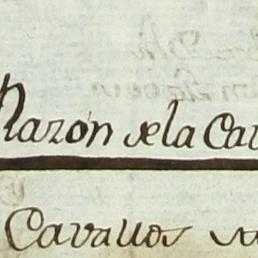 Razón de la Cav
Cavallos